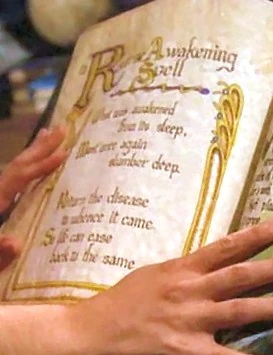 Awakening
Spell
What was awakened
from its sleep,
Must once again
slumber deep.
Return the disease
to whence it came.
So life can ease
back to the same